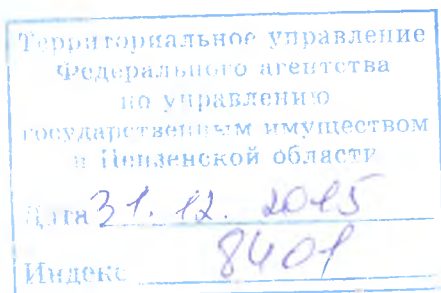 Территориальное управление
Федерального агентства
по управлению
государственным имуществом
в Пензенской области
Дата 31. 12. 2015
Индекс 8401